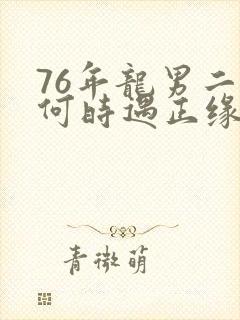 76年龍男二
何時遇正缘
青微萌